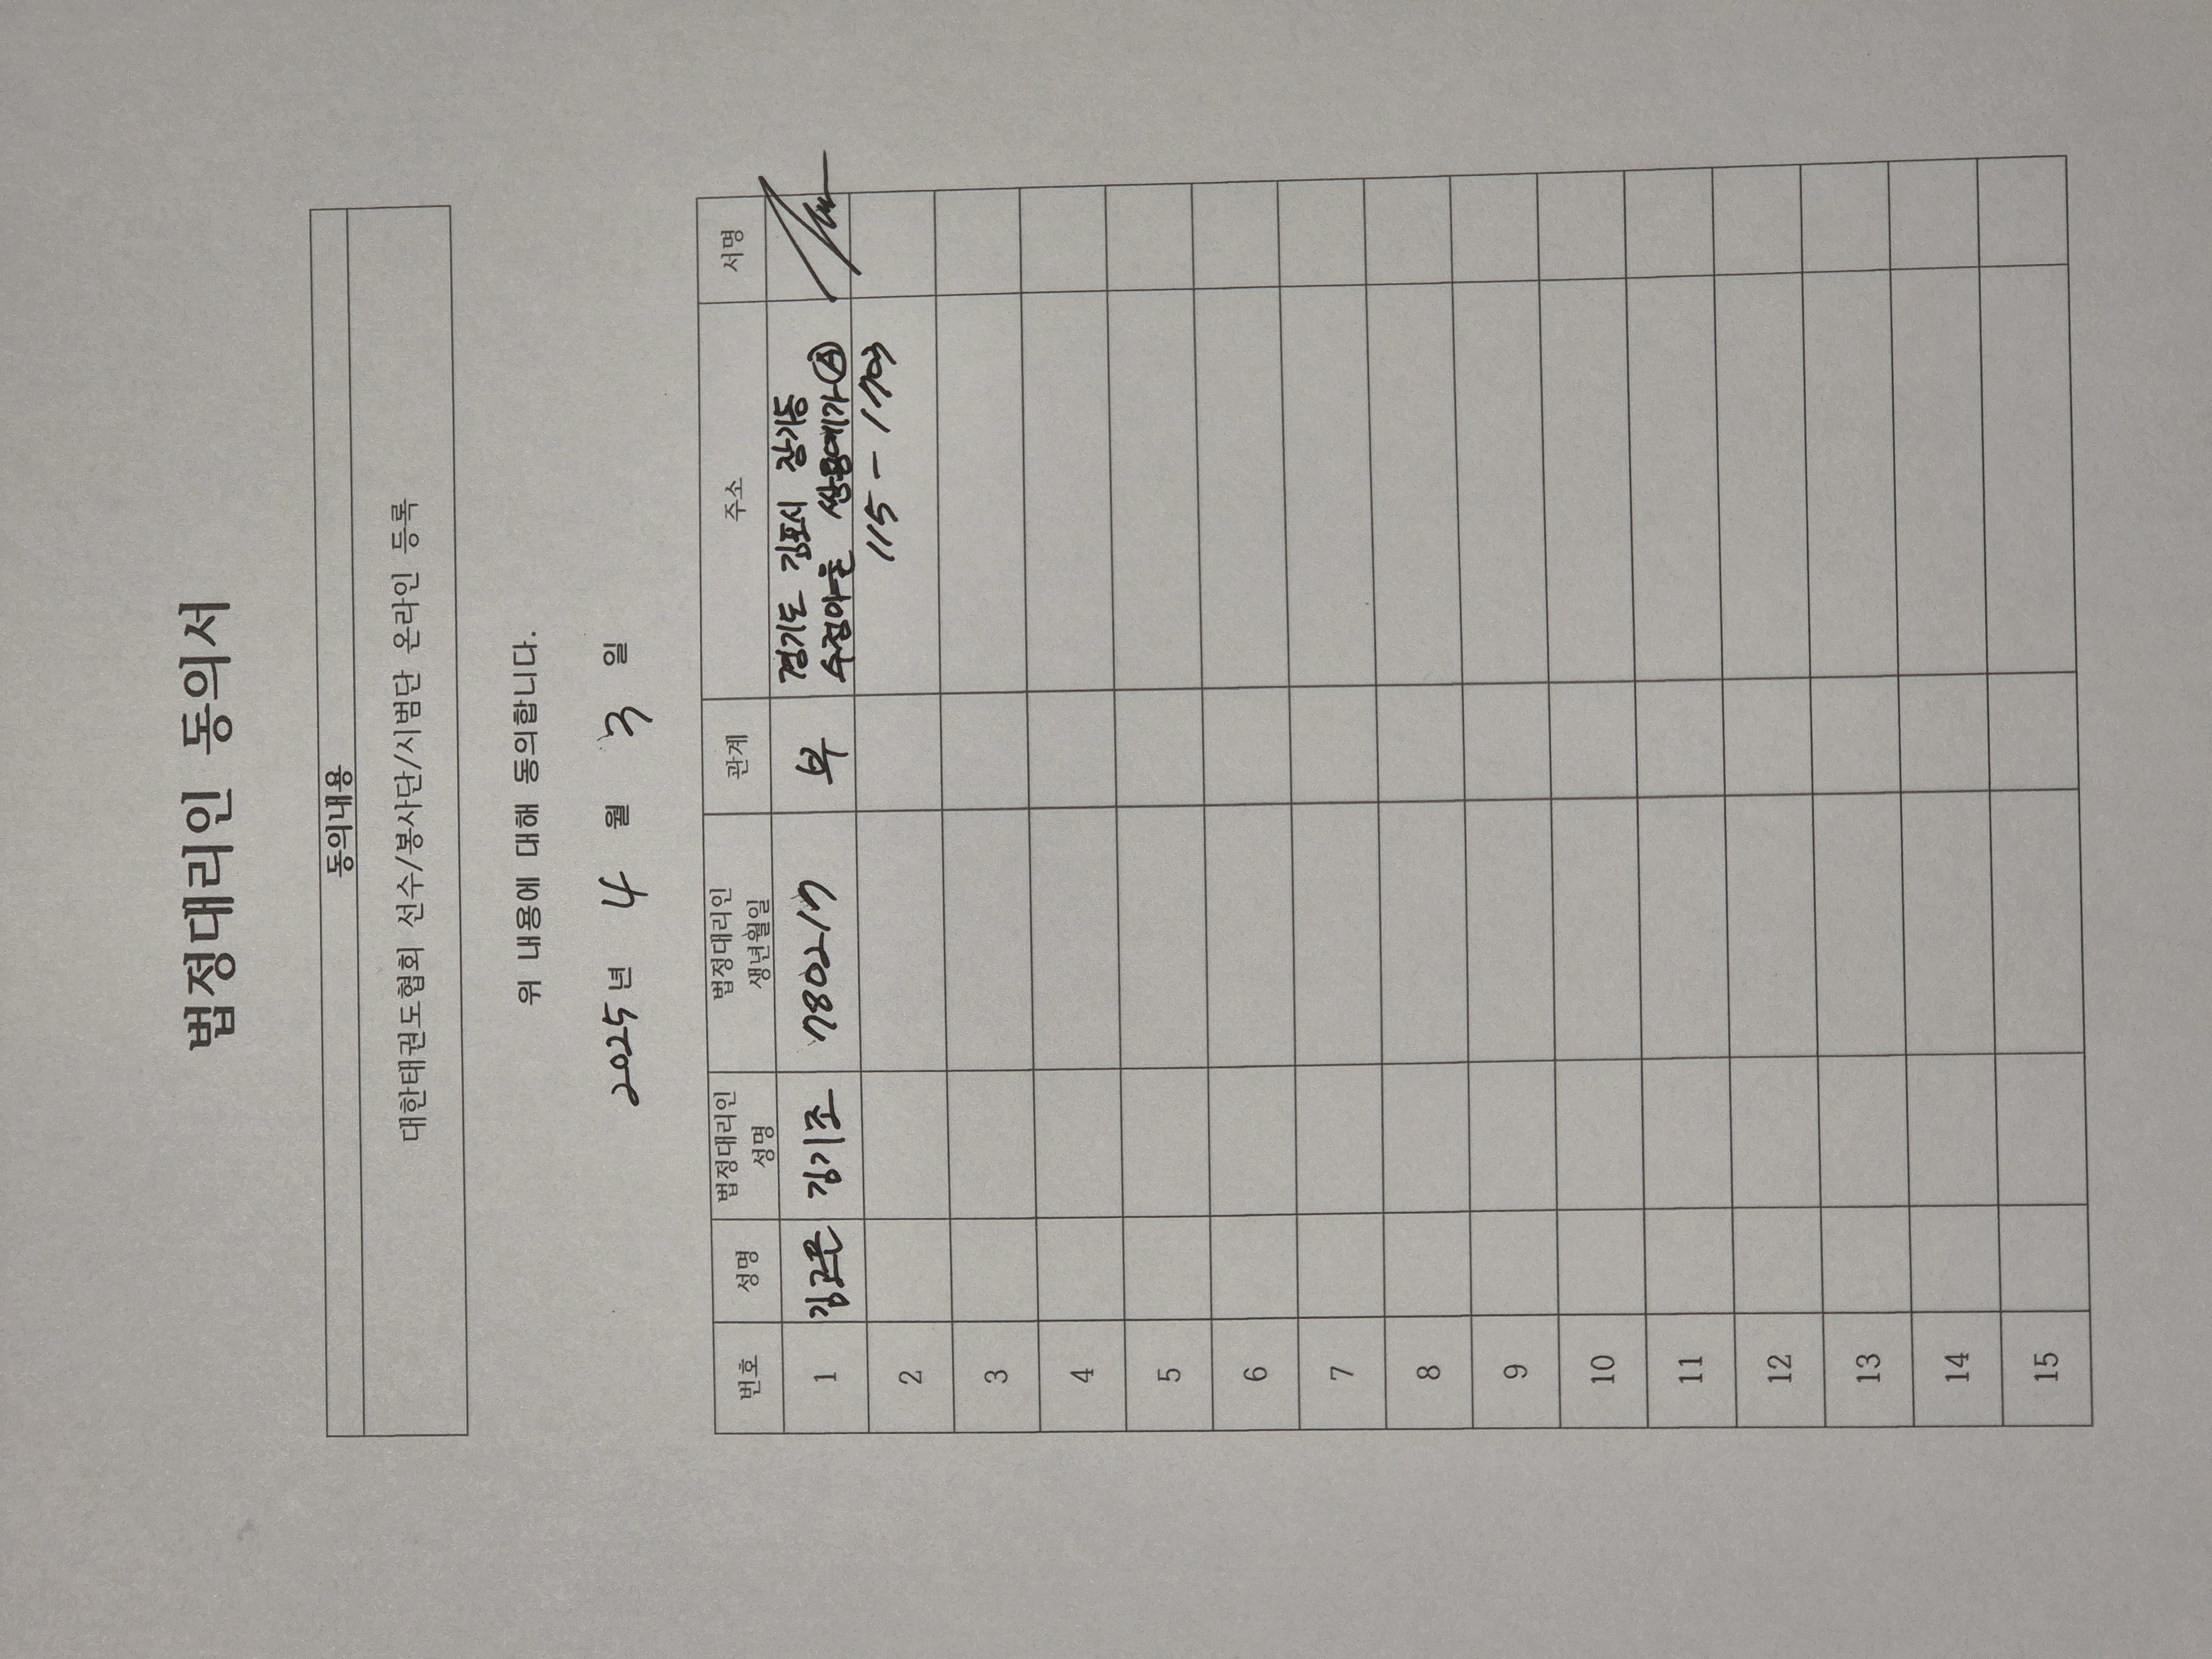 법정대리인 동의서
동의내용
대한태권도협회 선수/봉사단/시범단 온라인 등록
위 내용에 대해 동의합니다.
2025년 4 월 3 일
번호 성명 법정대리인 성명 법정대리인 생년월일 관계 주소 서명
1 김기조 780213 부 경기도 김포시 장기동
수정마을 쌍용예가 Ⓐ
115 - 1703
2
3
4
5
6
7
8
9
10
11
12
13
14
15